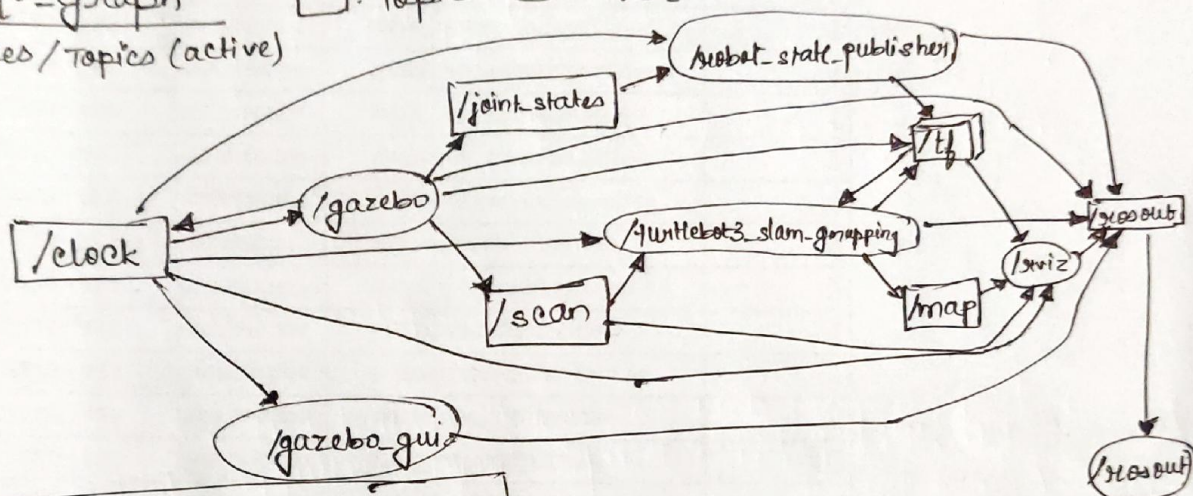 es/Topics (active)
/robot_state_publisher
/joint_states
/tf
/gazebo
/rosout
/turtlebot3_slam_gmapping
/clock
/rviz
/scan
/map
/gazebo_gui
/rosout